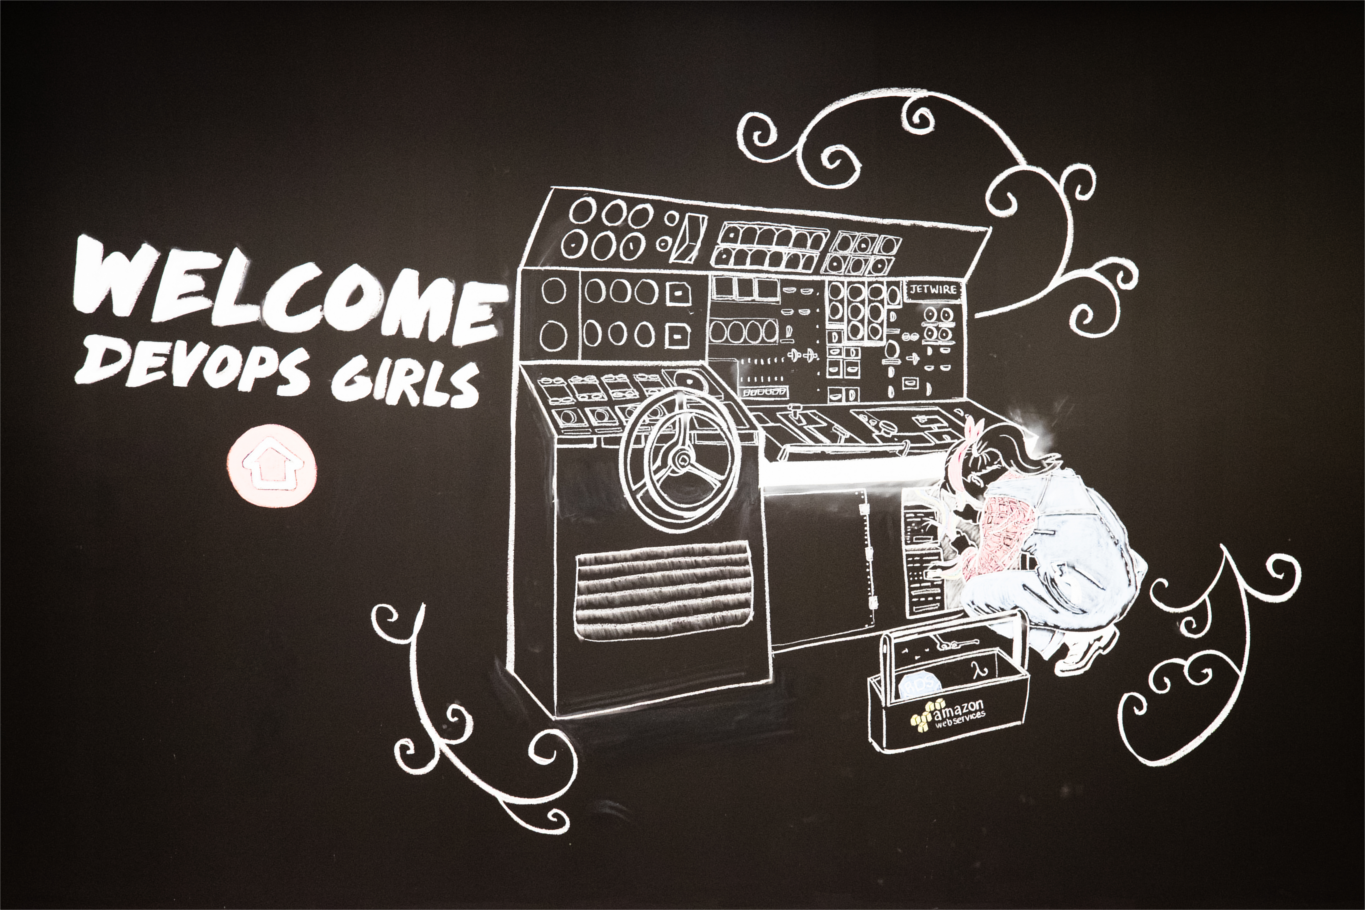 WELCOME
DEVOPS GIRLS
JETWIRE
λ
amazon
web services